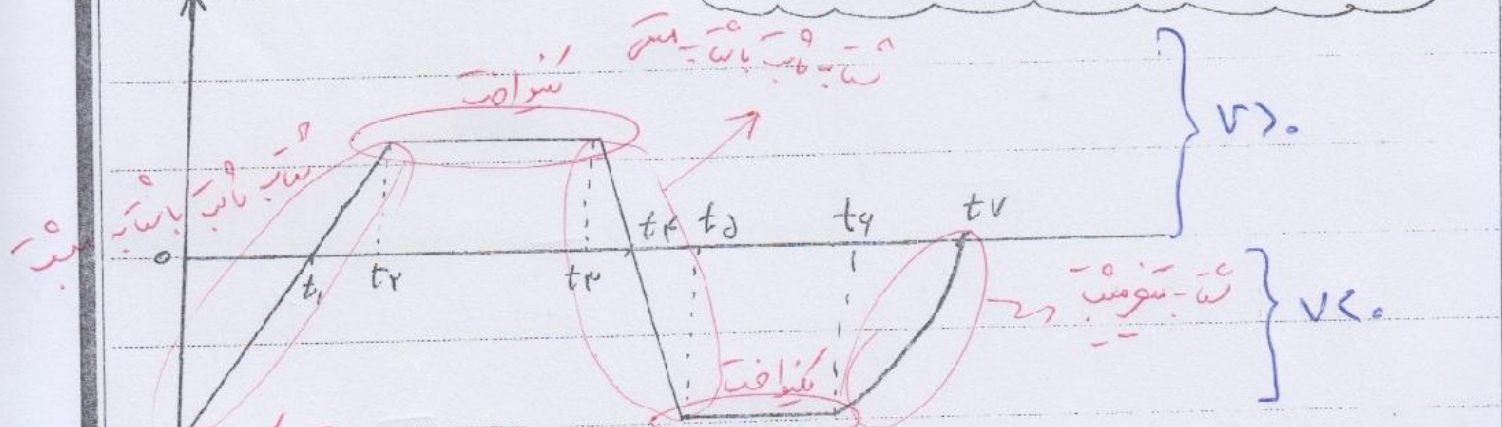 شتاب ثابت با شتاب منفی
یکنواخت
شتاب ثابت با شتاب مثبت
v>۰
t۴ t۵ t۶ t۷
o t۱ t۲ t۳
شتاب متغیر مثبت
v<۰
یکنواخت